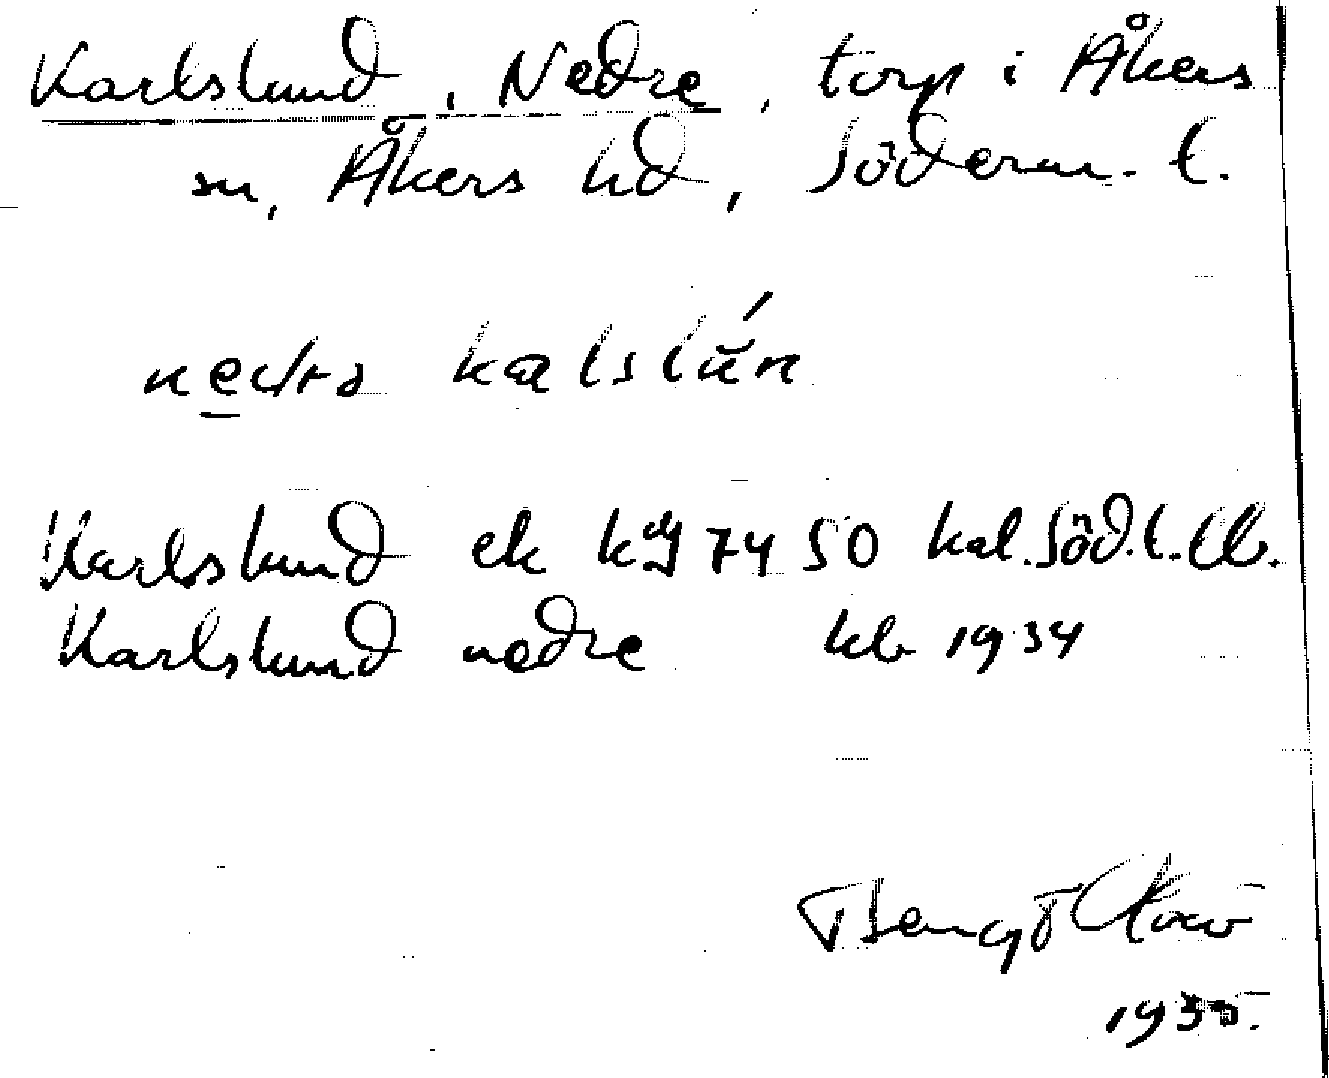 Karlslund, Nedre, torp i Åkers
sn, Åkers hd, Söderm. l.
nedra kalslún
Karlslund ek 7450 kal. Söd.l.
Karlslund nedre kb 1934
Bengt
1935.